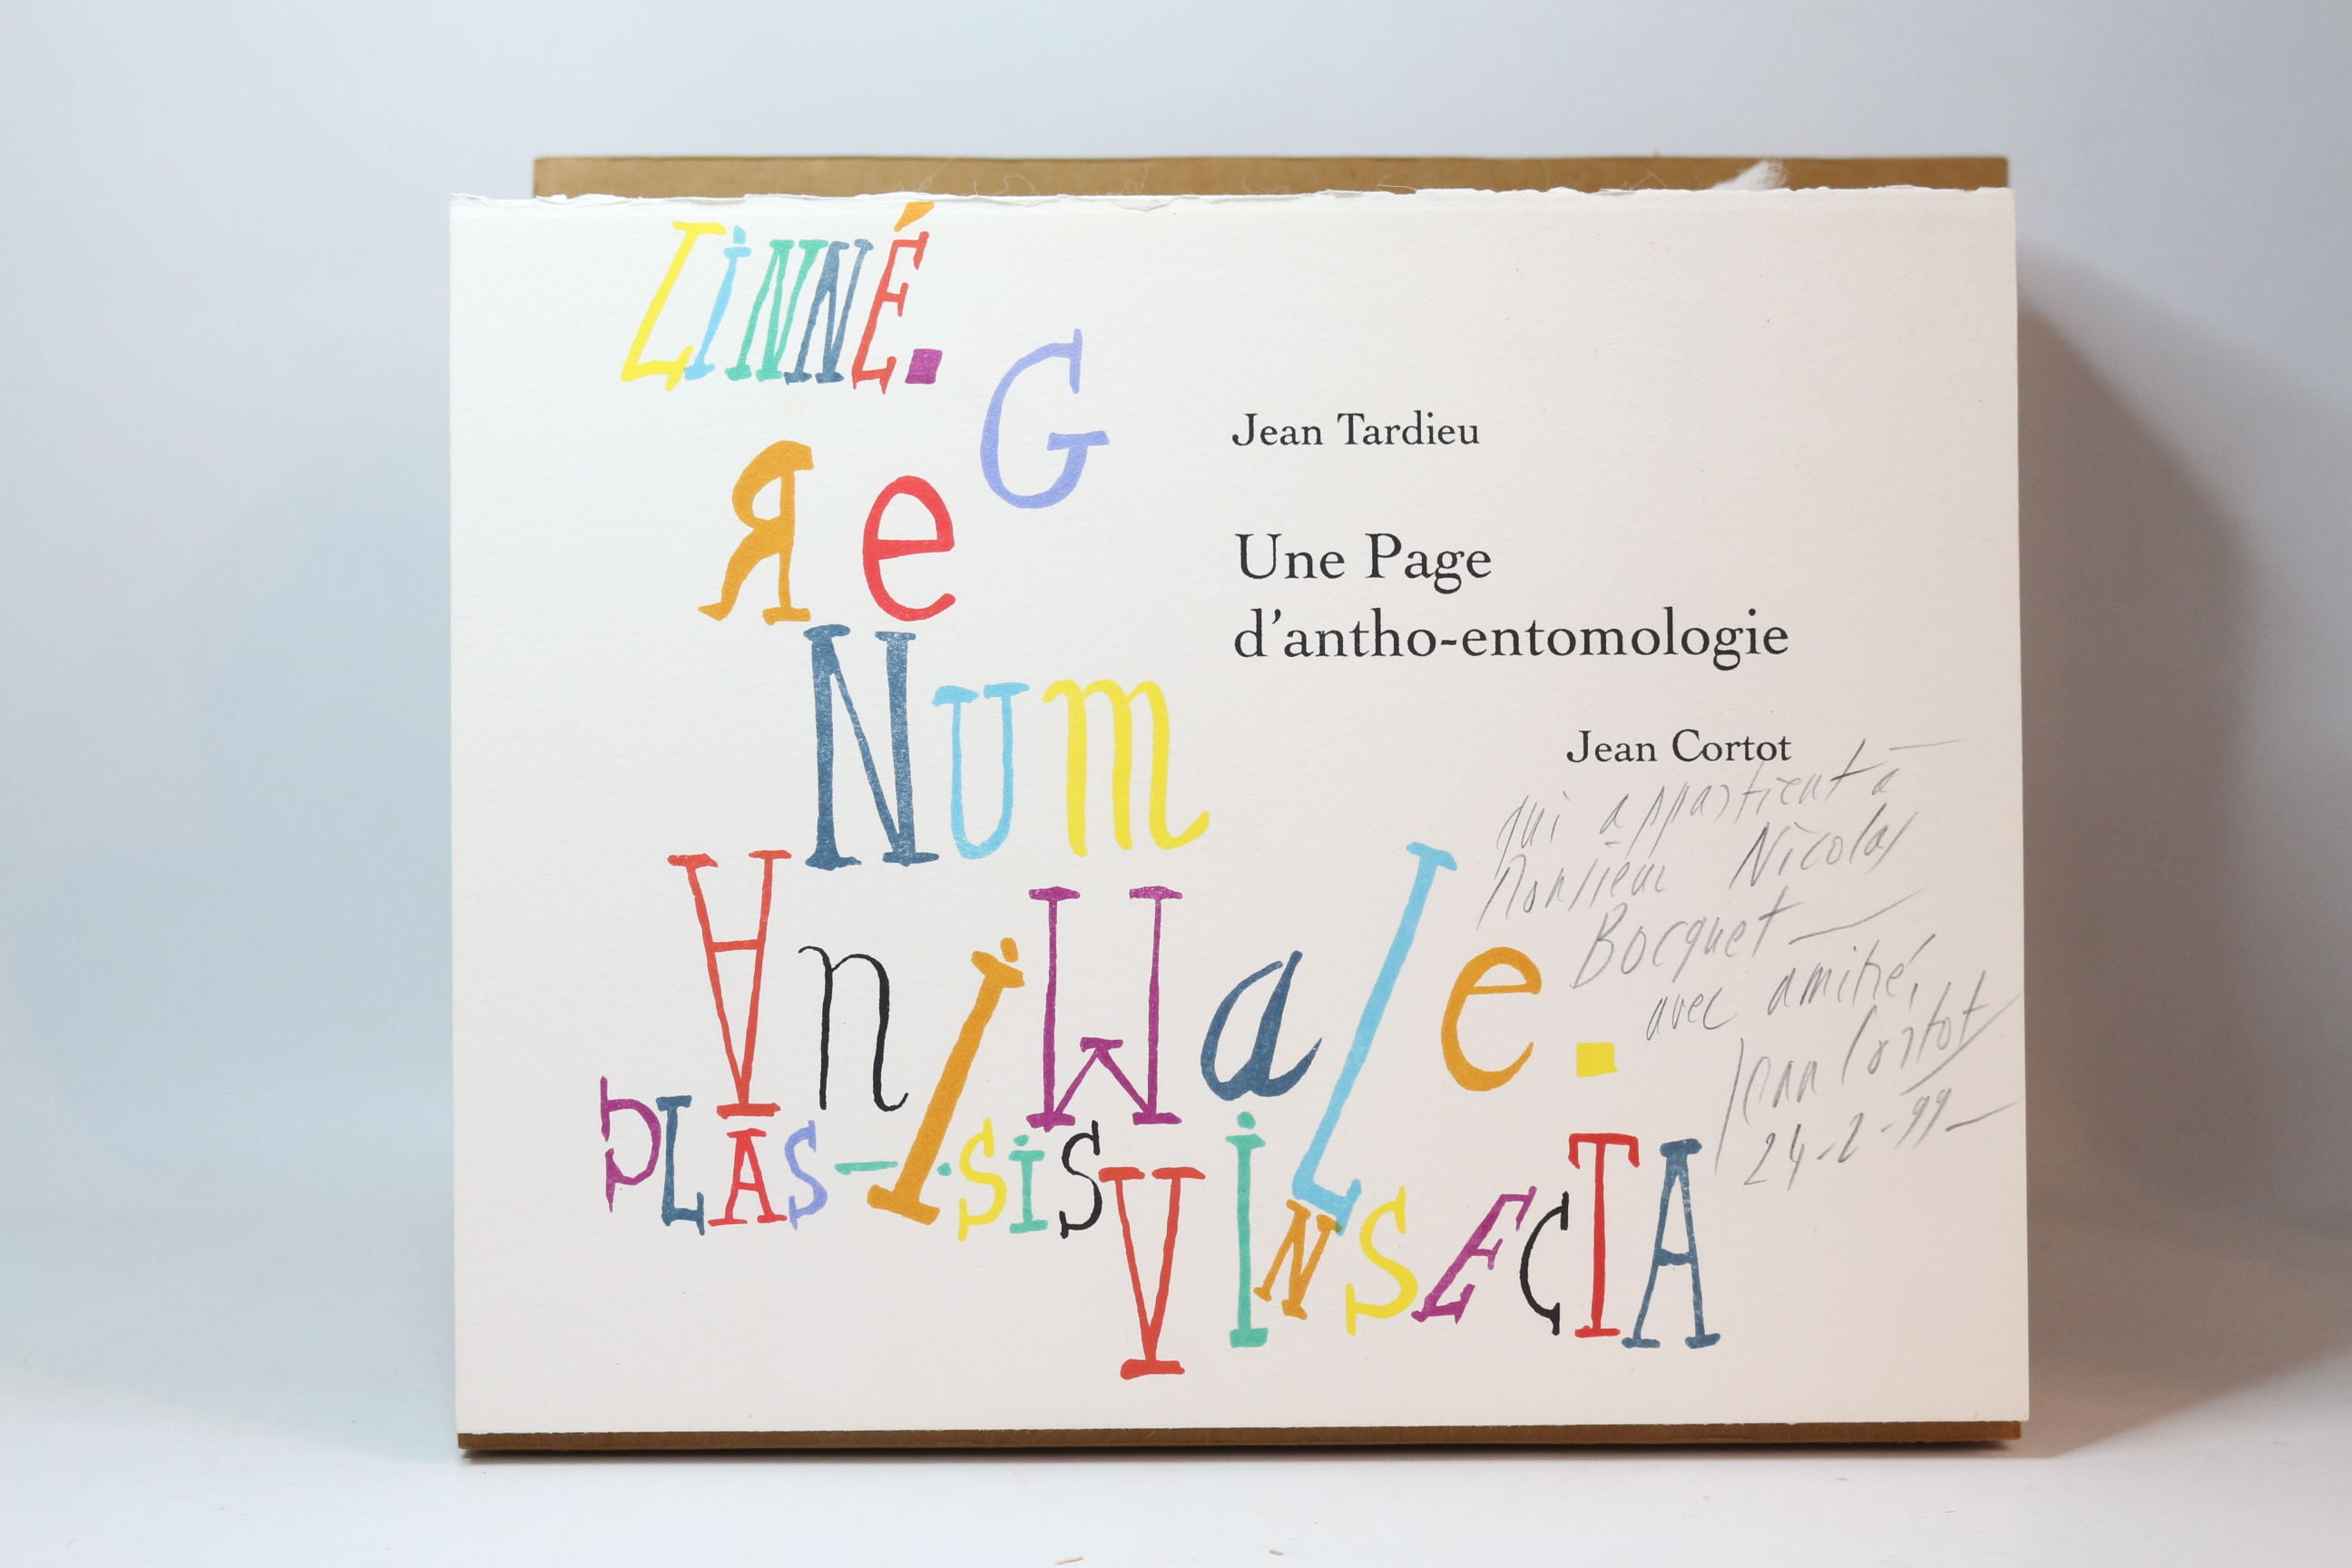 LiNNÉ.
ReG
NUm
AniMaLe.
CLAS-SiS V iNSECTA
Jean Tardieu
Une Page
d'antho-entomologie
Jean Cortot
qui appartient à
Monsieur Nicolas
Bocquet —
avec amitié,
Jean Cortot
24-2-99-